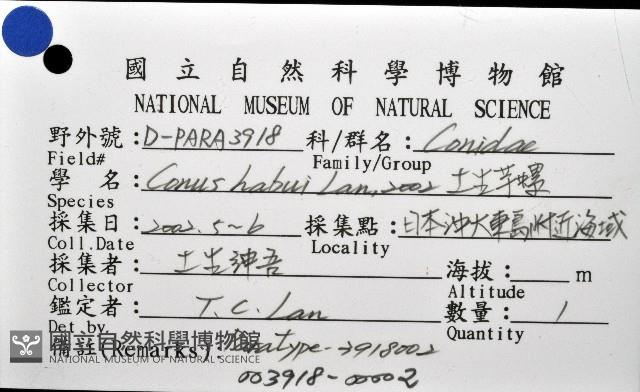 國立自然科學博物館
NATIONAL MUSEUM OF NATURAL SCIENCE
野外號：D-PARA3918 科/群名：Conidae
Field# Family/Group
學 名：Conus habui Lan, 2002 土生芋螺
Species
採集日：2002.5~6 採集點：日本沖大東島附近海域
Coll.Date Locality
採集者：土生紳吾 海拔： m
Collector Altitude
鑑定者：T.C. Lan 數量：1
Det by. Quantity
備註(Remarks)：Paratype-3918002
國立自然科學博物館
NATIONAL MUSEUM OF NATURAL SCIENCE
003918-00002